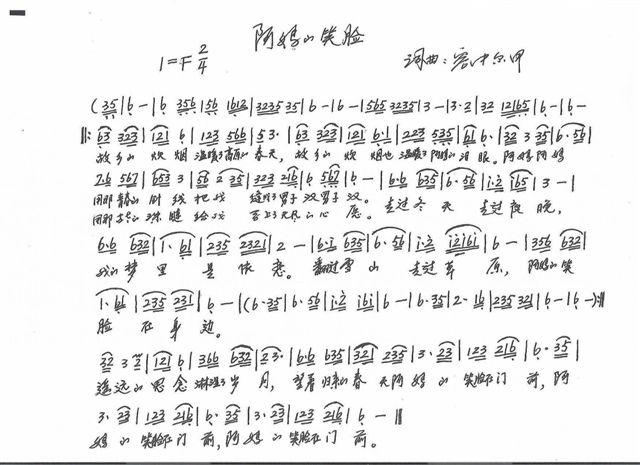 阿妈的笑脸
1=F 2/4
词曲:容中尔甲
(35|6-|6 356|56 1612|3235 35|6-|6-|5165 3235|3-|3·2|32 12165|6-|6-
||:63 323|121 6|123 566|53·|63 323|121 6·1|223 535|61 6·|32 3 35|6·56|
故乡的炊烟温暖了高原的春天,故乡的炊烟也温暖了阿妈的泪眼。阿妈阿妈
276 567|653 3|56 2 35|323 216|6 567|6-|6·6 635|6·56|i·2 i65|3-|
用那青青的针线把我缝成了男子汉男子汉。走过冬天走过夜晚,
用那
6·6 632|1·61|235 2321|2-|6·i 635|6·56|i·2 i2i6i|6-|356 632|
我的梦里是依恋。翻过雪山走过草原,阿妈的笑
1·61|235 231|6-|(6·35|6·56|i·2 i6i|6-|6·35|2·16|235 321|6-|6-):||
脸在身边。
32 3 2|121 6|366 632|23·|6·6 635|321 235|3·23|123 216|6·35|
遥远的思念淋湿了岁月,望着归来的春天阿妈的笑脸在门前,阿
3·23|123 216|6·35|3·23|123 216|6-||
妈的笑脸在门前,阿妈的笑脸在门前。